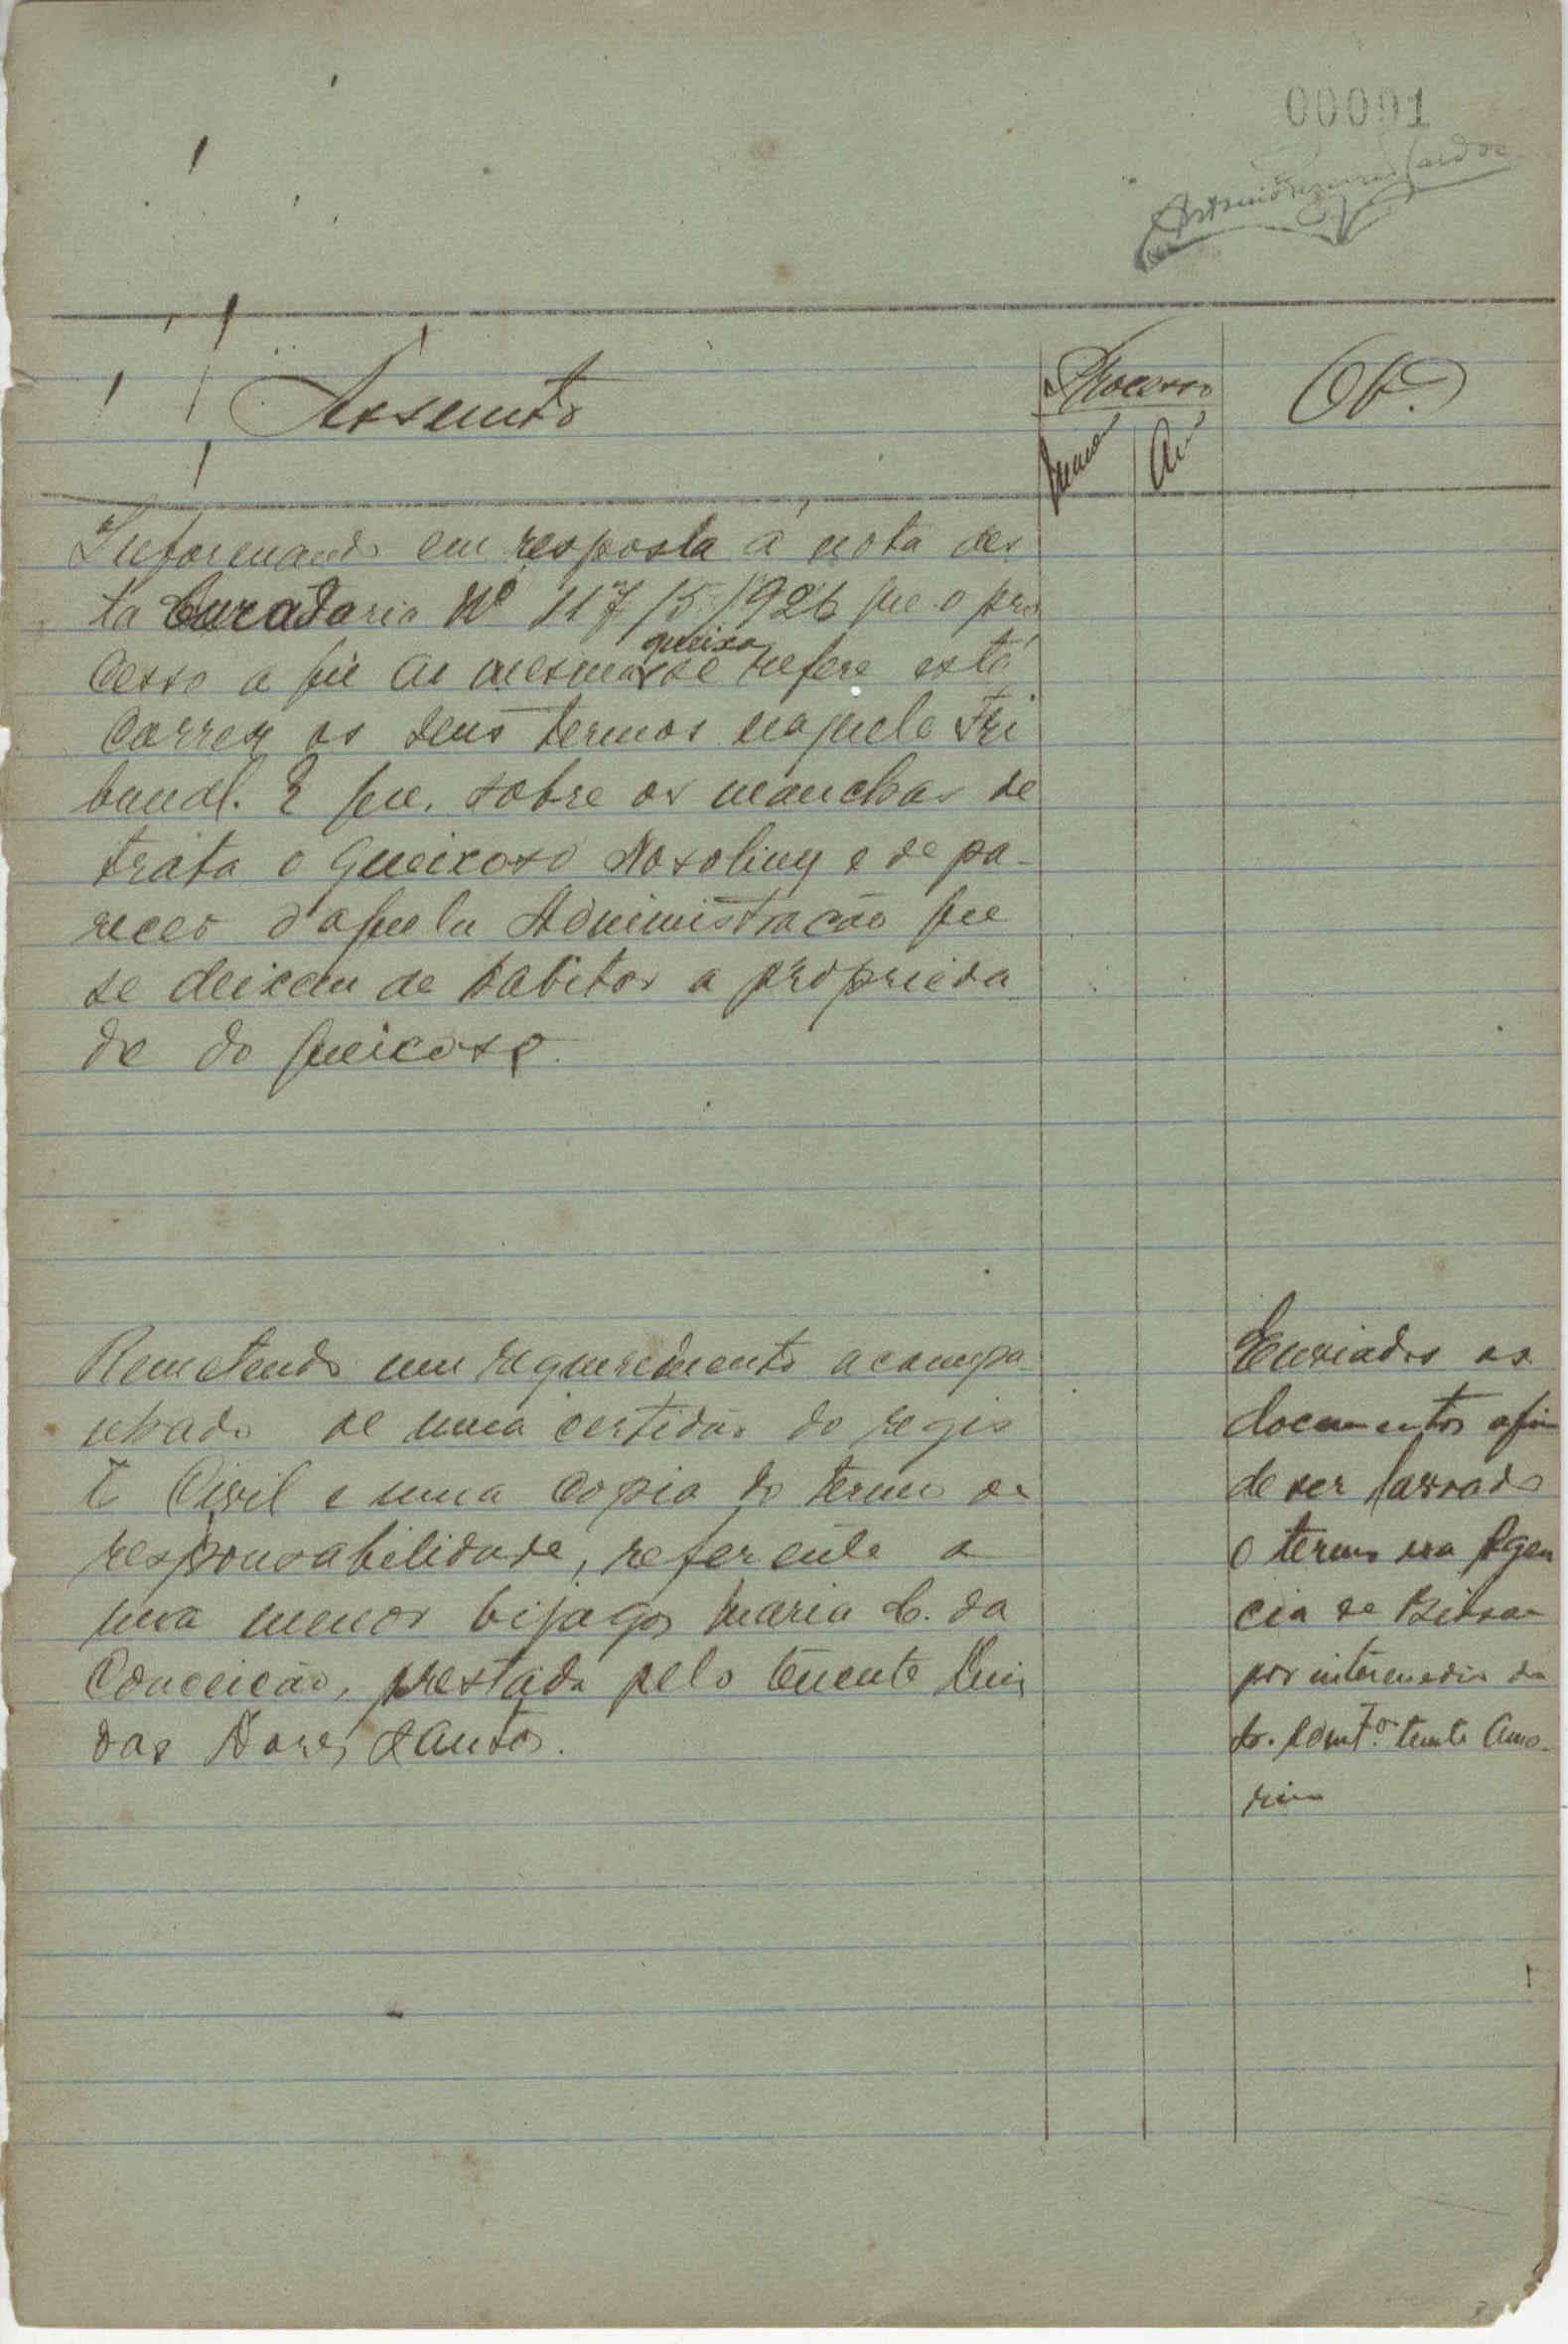 00091
Assunto
Processo
Ob.
Informando em resposta á nota des
ta Curadoria Nº 117/5/926 que o pro
queixa
cesso a que a mesma se refere está
correr os seus termos naquele Tri
bunal. E que, sobre os manchas de
trata o queixoso Nosoliny e de pa-
recer d'aquela Administração que
se deixem de habitar a proprieda
de do queixoso.
Remetendo um requerimento acompa
nhado de uma certidão do regis
to Civil e uma copia do termo de
responsabilidade, referente a
uma menor bijagoz Maria C. da
Conceição, prestada pelo tenente Luis
das Santos.
Enviados os
documentos afim
de ser lavrado
o termo na Agen
cia de Bissau
por intermedio do
tenente Amo-
rim